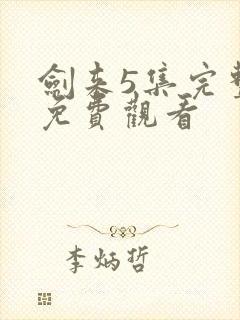 劍來5集完整
免費觀看
李炳哲